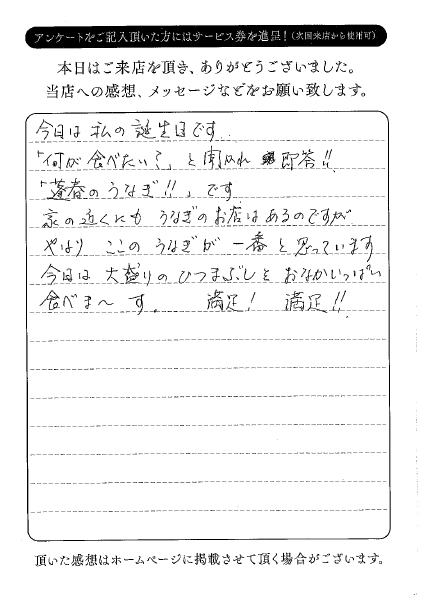 アンケートをご記入頂いた方にはサービス券を進呈!(次回来店から使用可)
本日はご来店を頂き、ありがとうございました。
当店への感想、メッセージなどをお願い致します。
今日は私の誕生日です。
「何が食べたい?」と聞かれ 即答!!
「蓬春のうなぎ!!」です
家の近くにも うなぎのお店はあるのですが
やはり ここの うなぎが 一番 と 思っています
今日は 大盛りの ひつまぶしを おなかいっぱい
食べま〜す。 満足! 満足!!
頂いた感想はホームページに掲載させて頂く場合がございます。